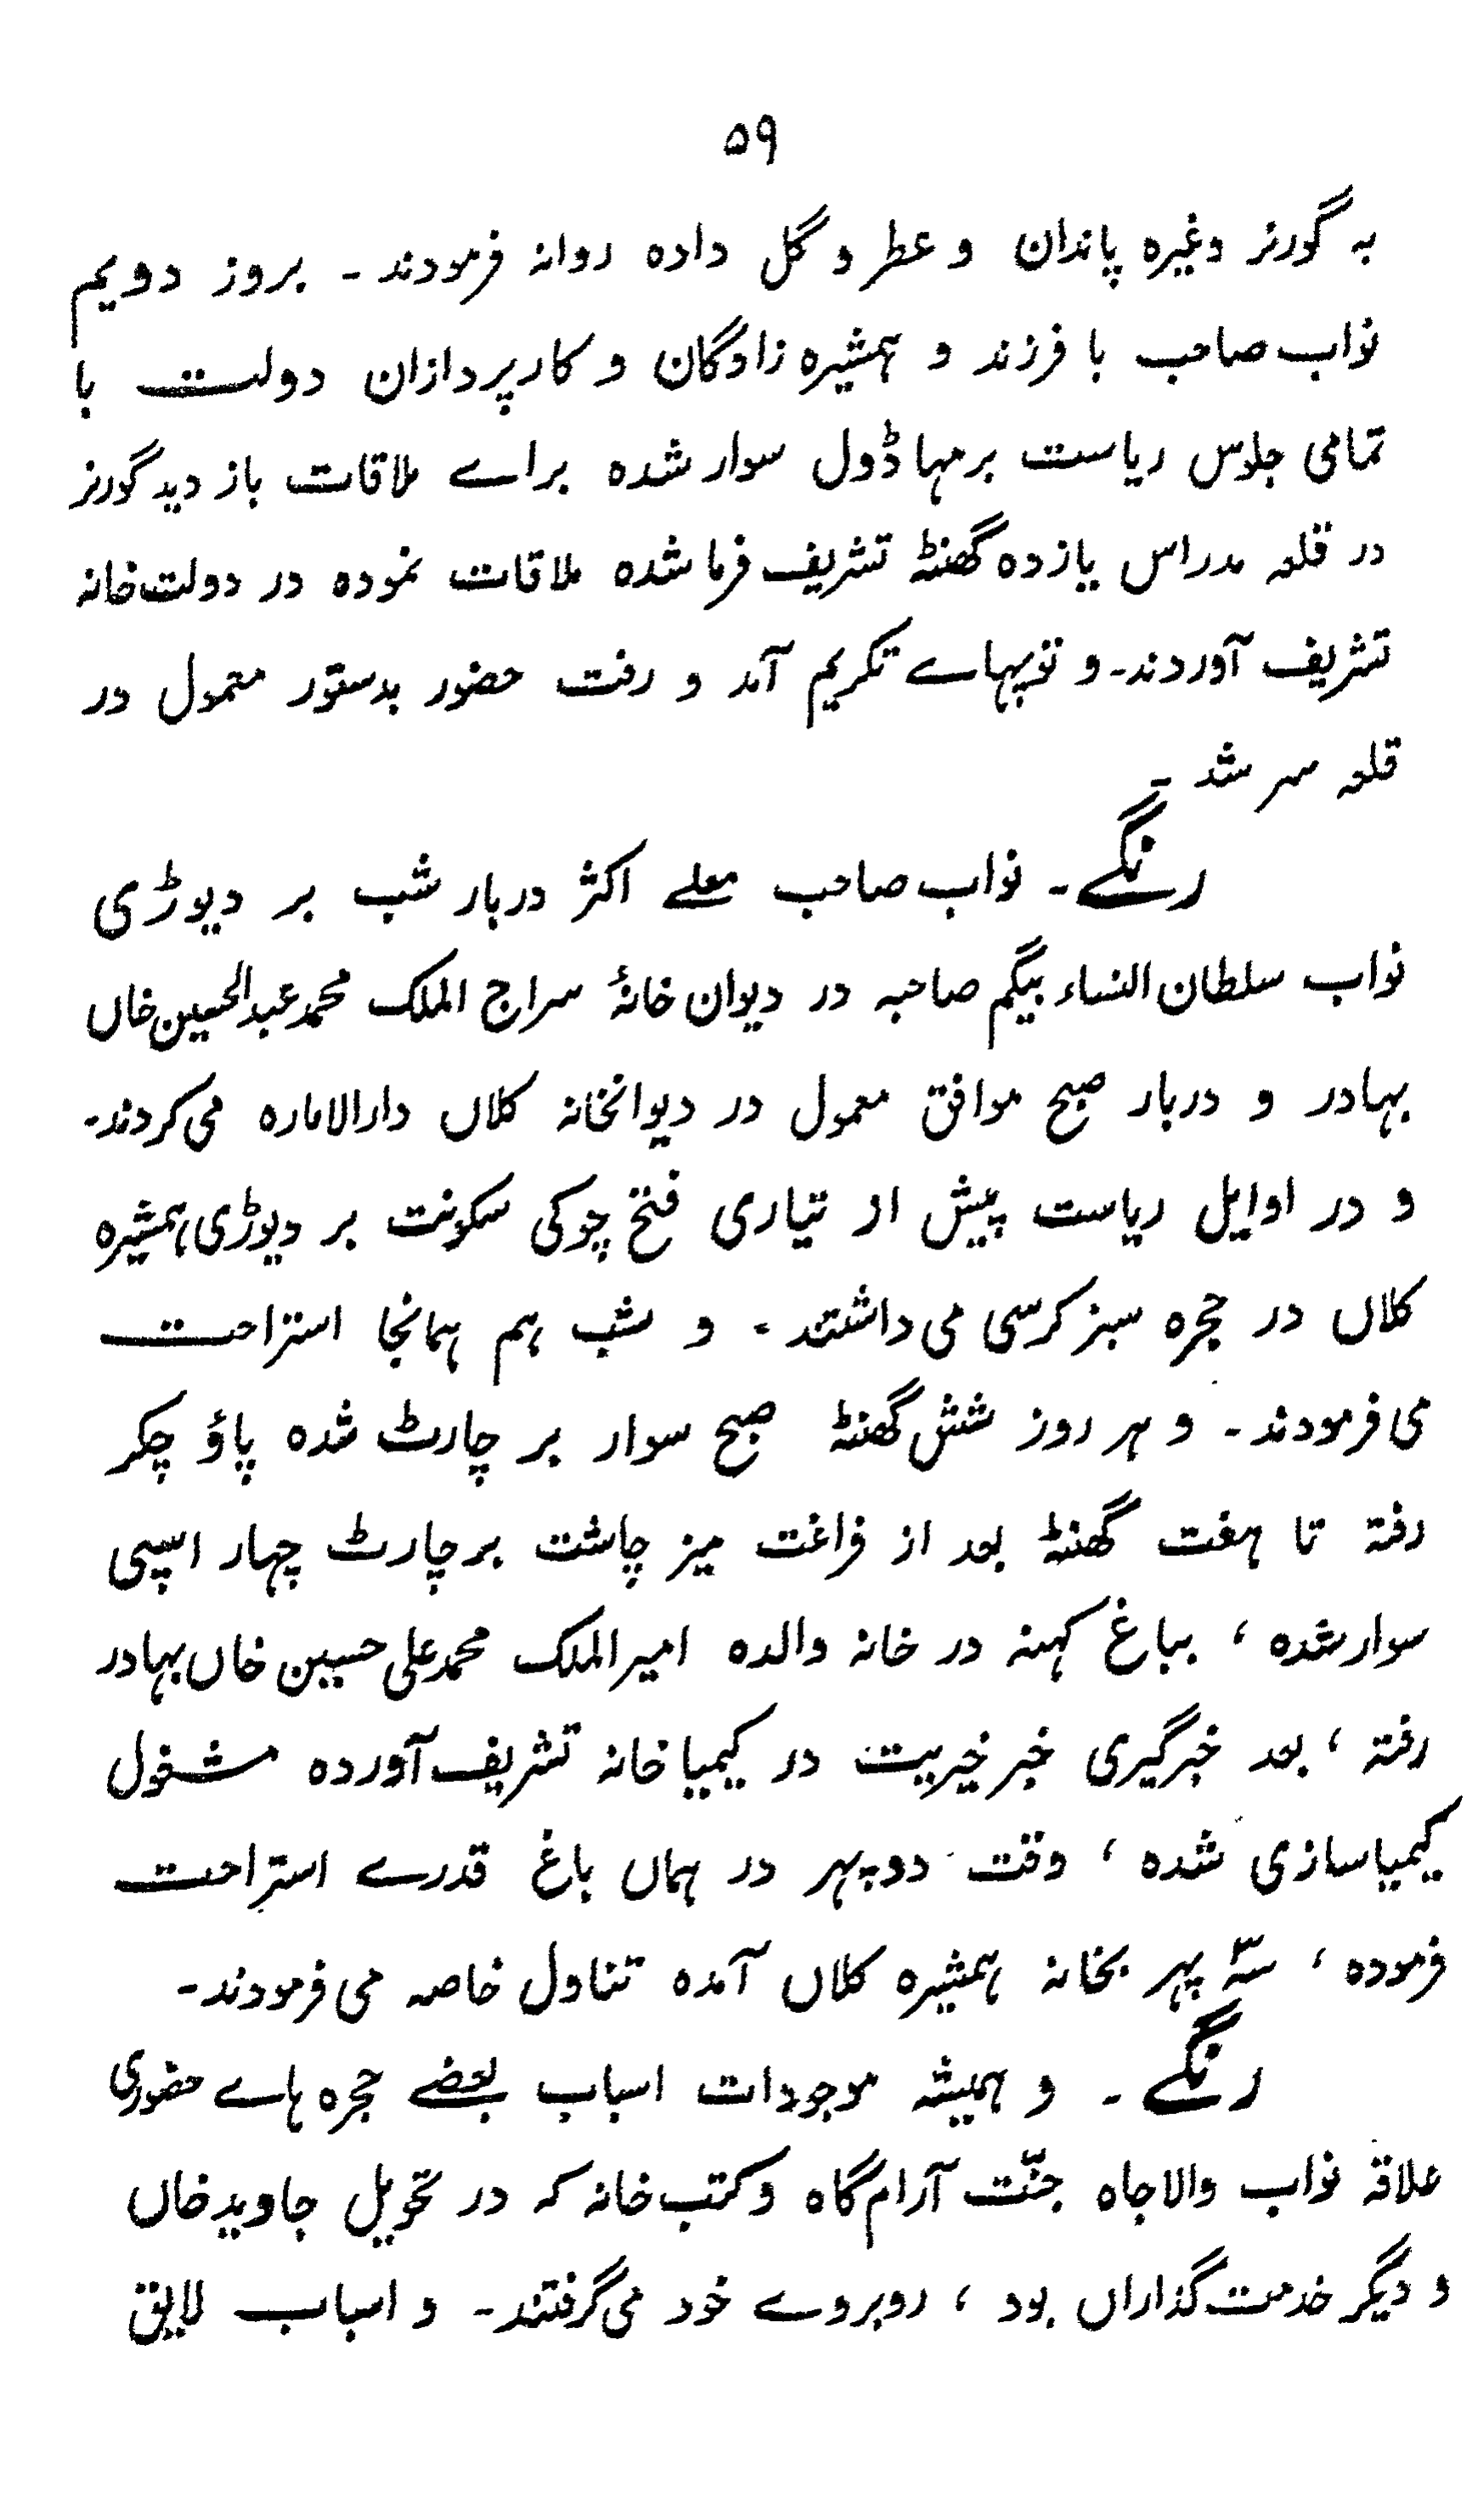 ۵۹
به گورنر وغیره پاندان و عطر و گل داده روانه فرمودند ۔ بروز دویم
نواب صاحب با فرزند و همشیره زادگان و کارپردازان دولت با
تمامی جلوس ریاست بر مہاڈول سوار شده براے ملاقات باز دید گورنر
در قلعه مدراس یازده گھنٹہ تشریف فرما شده ملاقات نموده در دولت خانه
تشریف آوردند۔ و توپہاے تکریم آمد و رفت حضور بدستور معمول در
قلعه سر شد ۔
رنگے ۔ نواب صاحب معلے اکثر دربار شب بر دیوڑی
نواب سلطان النساء بیگم صاحبه در دیوان خانۀ سراج الملک محمد عبدالحسین خاں
بہادر و دربار صبح موافق معمول در دیوانخانه کلاں دارالاماره می کردند۔
و در اوایل ریاست پیش از تیاری فتح چوکی سکونت بر دیوڑی ہمشیره
کلاں در حجره سبز کرسی می داشتند ۔ و شب ہم ہمانجا استراحت
می فرمودند ۔ و ہر روز شش گھنٹہ صبح سوار بر چارٹ شده پاؤ چکر
رفته تا ہفت گھنٹہ بعد از فراغت میز چاشت بر چارٹ چہار اسپی
سوار شده ، بباغ کہنہ در خانه والده امیر الملک محمد علی حسین خاں بہادر
رفته ، بعد خبرگیری خبر خیریت در کیمیا خانه تشریف آورده مشغول
کیمیا سازی شده ، وقت دوپہر در ہماں باغ قدرے استراحت
فرموده ، سہ پہر بخانه ہمشیره کلاں آمده تناول خاصه می فرمودند۔
رنگے ۔ و ہمیشہ موجودات اسباب بعضے حجره ہاے حضوری
علاقہ نواب والاجاه جنّت آرام گاه و کتب خانه که در تحویل جاوید خاں
و دیگر خدمت گذاراں بود ، روبروے خود می گرفتند ۔ و اسباب لایق